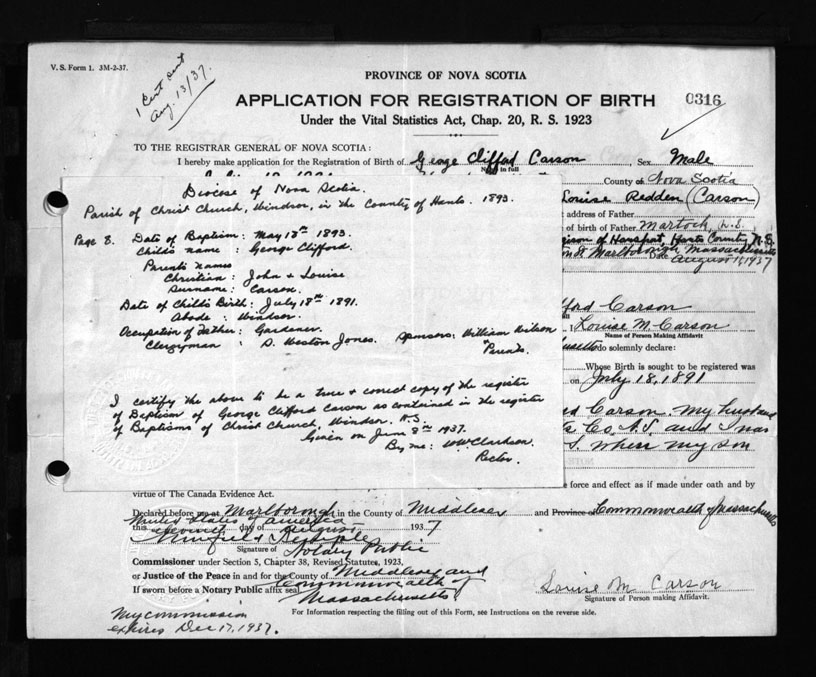 V. S. Form 1. 3M-2-37.
1 Cert sent
Aug. 13/37.
PROVINCE OF NOVA SCOTIA
APPLICATION FOR REGISTRATION OF BIRTH
0316
Under the Vital Statistics Act, Chap. 20, R. S. 1923
TO THE REGISTRAR GENERAL OF NOVA SCOTIA:
I hereby make application for the Registration of Birth of George Clifford Carson Sex Male
Name in full
County of Nova Scotia
Louise Redden (Carson)
address of Father
of birth of Father Martock, N.S.
of Hantsport, Hants County, N.S.
Marlborough Massachusetts
Date August 11, 1937
Diocese of Nova Scotia.
Parish of Christ Church, Windsor, in the County of Hants. 1893.
Page 8. Date of Baptism: May 18th 1893.
Child's name: George Clifford.
Parents Names
Christian: John & Louise
Surname: Carson.
Date of Child's Birth: July 18th 1891.
Abode: Windsor.
Occupation of Father: Gardener.
Sponsors: William Wilson
Clergyman: D. Weston Jones.
Parents.
I certify the above to be a true & correct copy of the register
of Baptism of George Clifford Carson as contained in the register
of Baptisms of Christ Church, Windsor. N.S.
Given on June 8th 1937.
By me: W.W. Clarkson.
Rector.
fford Carson
I Louise M. Carson
Name of Person Making Affidavit
do solemnly declare:
Whose Birth is sought to be registered was
on July 18, 1891
Carson. My husband
Co. N.S. and I was
S. where my son
e force and effect as if made under oath and by
virtue of The Canada Evidence Act.
Declared before me at Marlborough in the County of Middlesex and Province of Commonwealth of Massachusetts
United States of America
this day of August 1937
Signature of Notary Public
Commissioner under Section 5, Chapter 38, Revised Statutes, 1923,
or Justice of the Peace in and for the County of Middlesex and
Commonwealth of
If sworn before a Notary Public affix seal
Massachusetts.
Louise M. Carson
Signature of Person making Affidavit.
For Information respecting the filling out of this Form, see Instructions on the reverse side.
My commission
expires Dec 17, 1937.